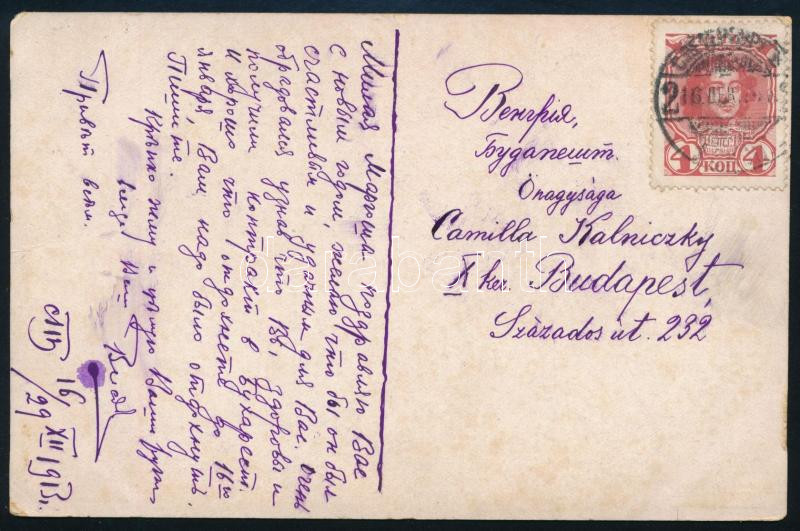 Милая Маргоша, поздравляю Вас
с новым годом, желаю что бы он был
счастливым и удачным для Вас. Очень
обрадовался узнав что Вы, здоровы и
получили контракт в Бухарест.
И хорошо что отдохнете до 16го
января Вам надо было отдохнуть.
Пишите.
Крѣпко жму и цѣлую Ваши руки
всегда Ваш
Привѣт всѣм.
16/29 XII 1913.
Венгрія,
Будапешт.
Önagysága
Camilla Kalniczky
X ker. Budapest,
Százados ut. 232
2
16
4 КОП 4
darabanth